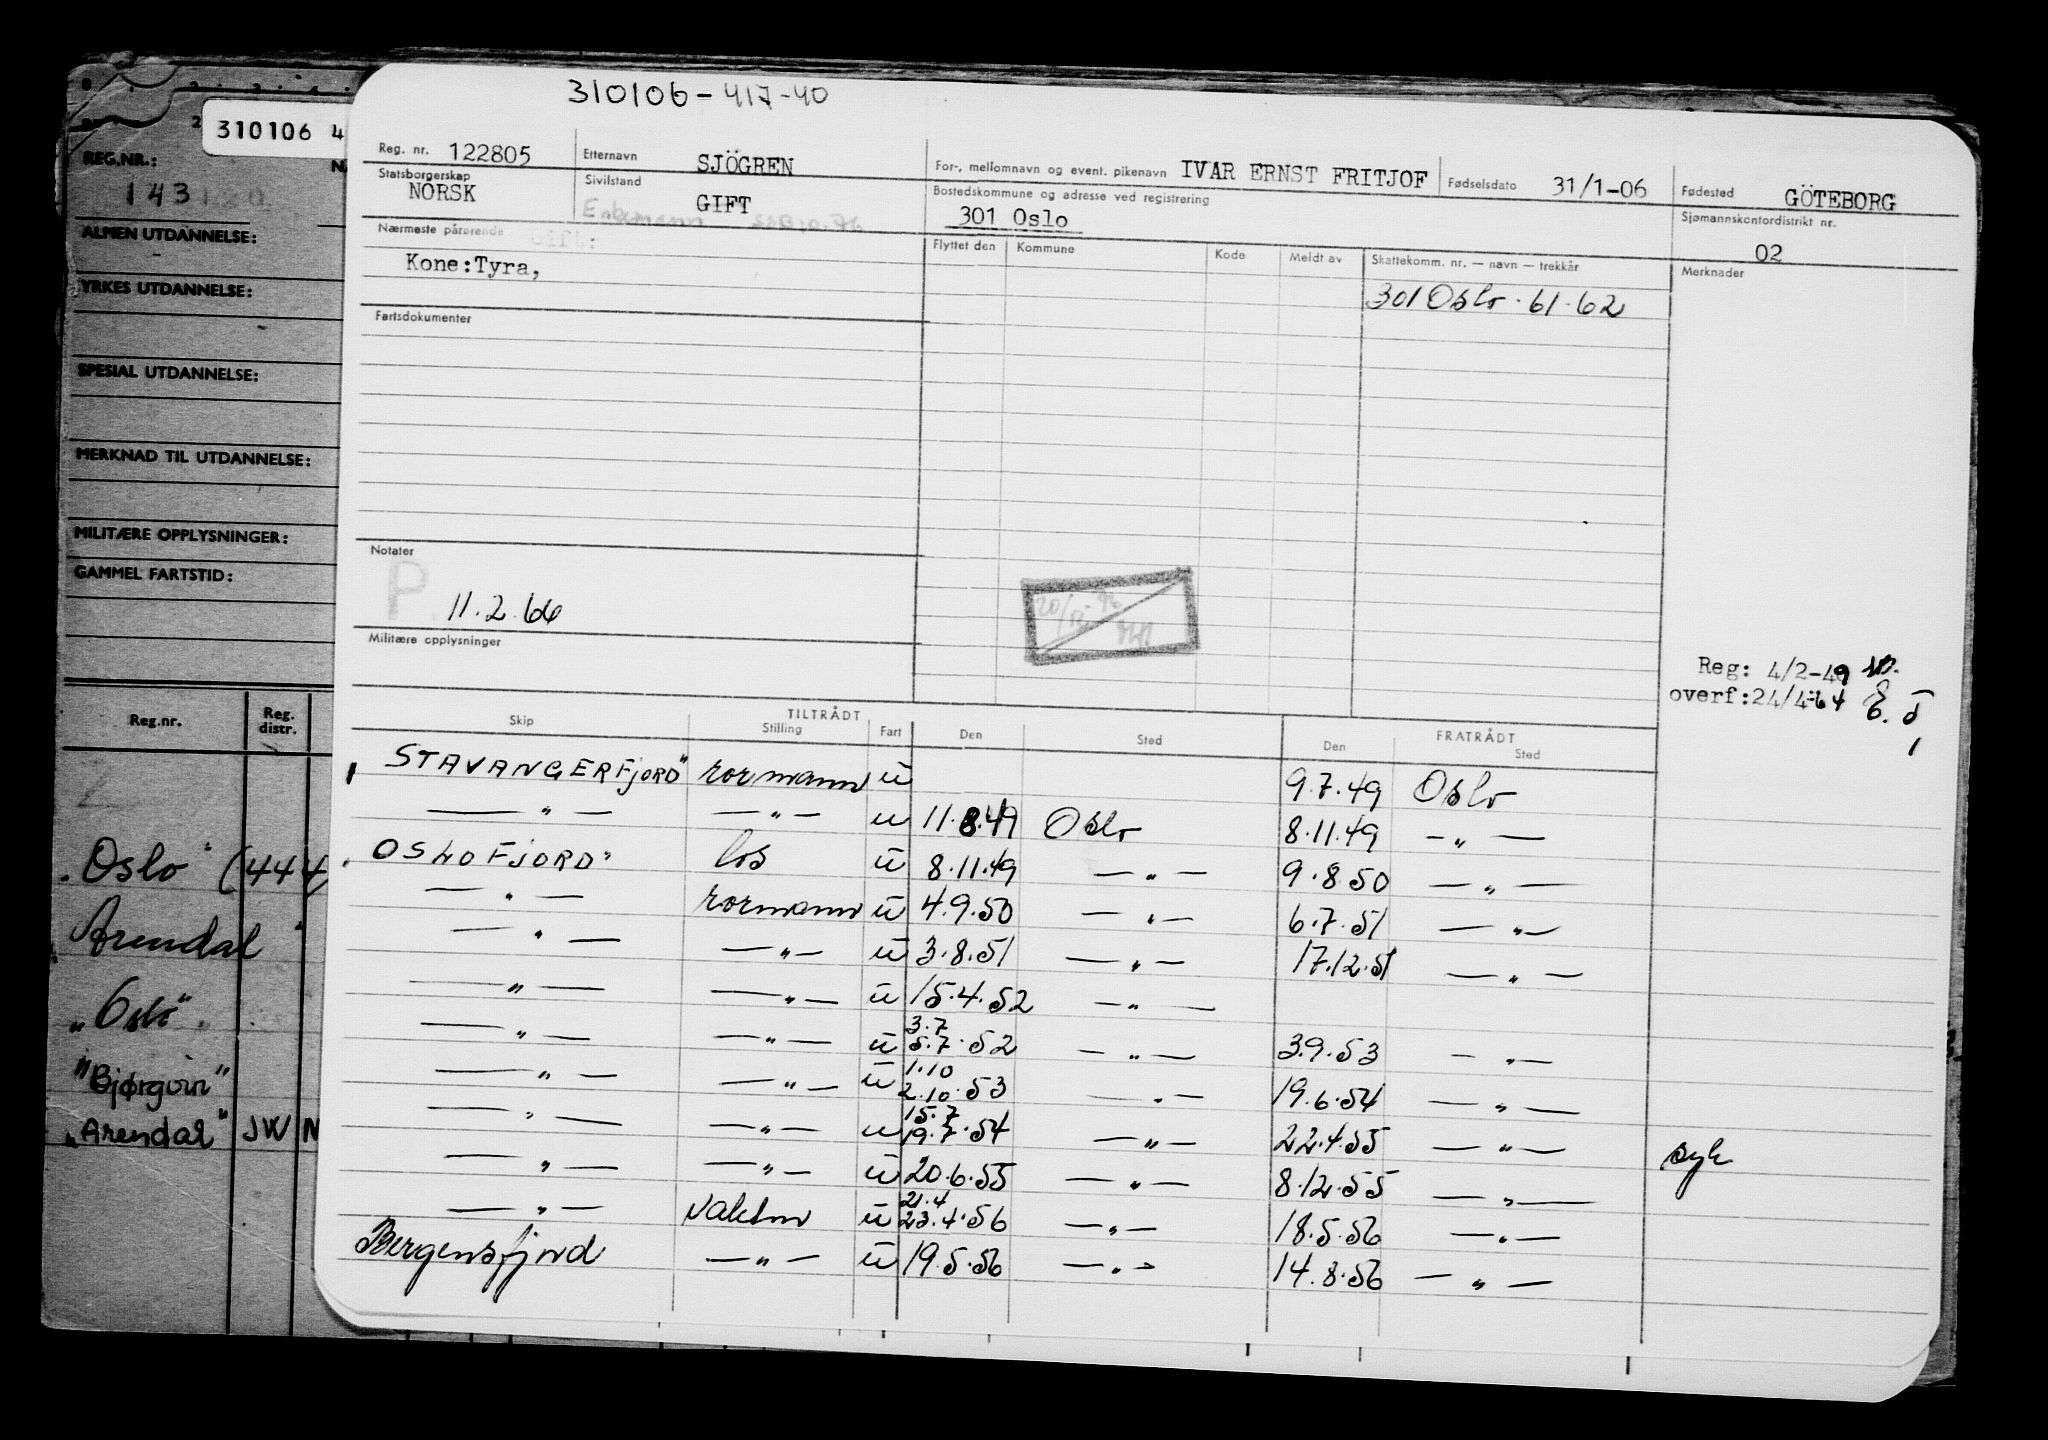 310106-417-40
310106 4
REG.NR.:
143
ALMEN UTDANNELSE:
YRKES UTDANNELSE:
SPESIAL UTDANNELSE:
MERKNAD TIL UTDANNELSE:
MILITÆRE OPPLYSNINGER:
GAMMEL FARTSTID:
Reg.nr. Reg. distr.
Oslo" (444
Arendal "
"Oslo"
"Bjørgvin"
"Arendal" JW N
Reg. nr. 122805 Etternavn SJÖGREN For-, mellomnavn og event. pikenavn IVAR ERNST FRITJOF Fødselsdato 31/1-06 Fødested GÖTEBORG
Statsborgerskap NORSK Sivilstand GIFT Bostedskommune og adresse ved registrering 301 Oslo Sjømannskontordistrikt nr. 02
Nærmeste pårørende Flyttet den Kommune Kode Meldt av Skattekomm. nr. — navn — trekkår Merknader
Kone:Tyra,
301 Oslo · 61 · 62
Fartsdokumenter
Notater
P.
11.2.66
Militære opplysninger
Reg: 4/2-49
overf:24/4-64 E. J
TILTRÅDT FRATRÅDT
Skip Stilling Fart Den Sted Den Sted
STAVANGERFJORD" rormann u 9.7.49 Oslo
— " — — " — u 11.8.49 Oslo 8.11.49 — " —
OSLOFJORD" los u 8.11.49 — " — 9.8.50 — " —
— " — rormann u 4.9.50 — " — 6.7.51 — " —
— " — — " — u 3.8.51 — " — 17.12.51 — " —
— " — — " — u 15.4.52 — " —
— " — — " — u 3.7 5.7.52 — " — 3.9.53 — " —
— " — — " — u 1.10 2.10.53 — " — 19.6.54 — " —
— " — — " — u 15.7 19.7.54 — " — 22.4.55 — " — syk
— " — — " — u 20.6.55 — " — 8.12.55 — " —
— " — Vaktm u 21.4 23.4.56 — " — 18.5.56 — " —
Bergensfjord — " — u 19.5.56 — " — 14.8.56 — " —